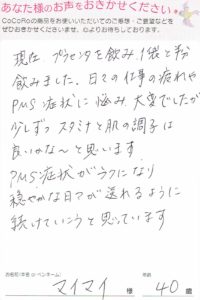 あなた様のお声をおきかせください
CoCoRoの商品をお使いいただいてのご感想・ご要望などを
ぜひおきかせくださいませ。心よりお待ちしております。
現在、プラセンタを飲み、1袋と半分
飲みました。日々の仕事の疲れや
PMS症状に悩み、大変でしたが
少しずつスタミナと肌の調子は
良いかな〜と思います。
PMS症状がラクになり
穏やかな日々が送れるように
続けていこうと思っています
お名前(本名 or ペンネーム)
年齢
マイマイ 様 40 歳